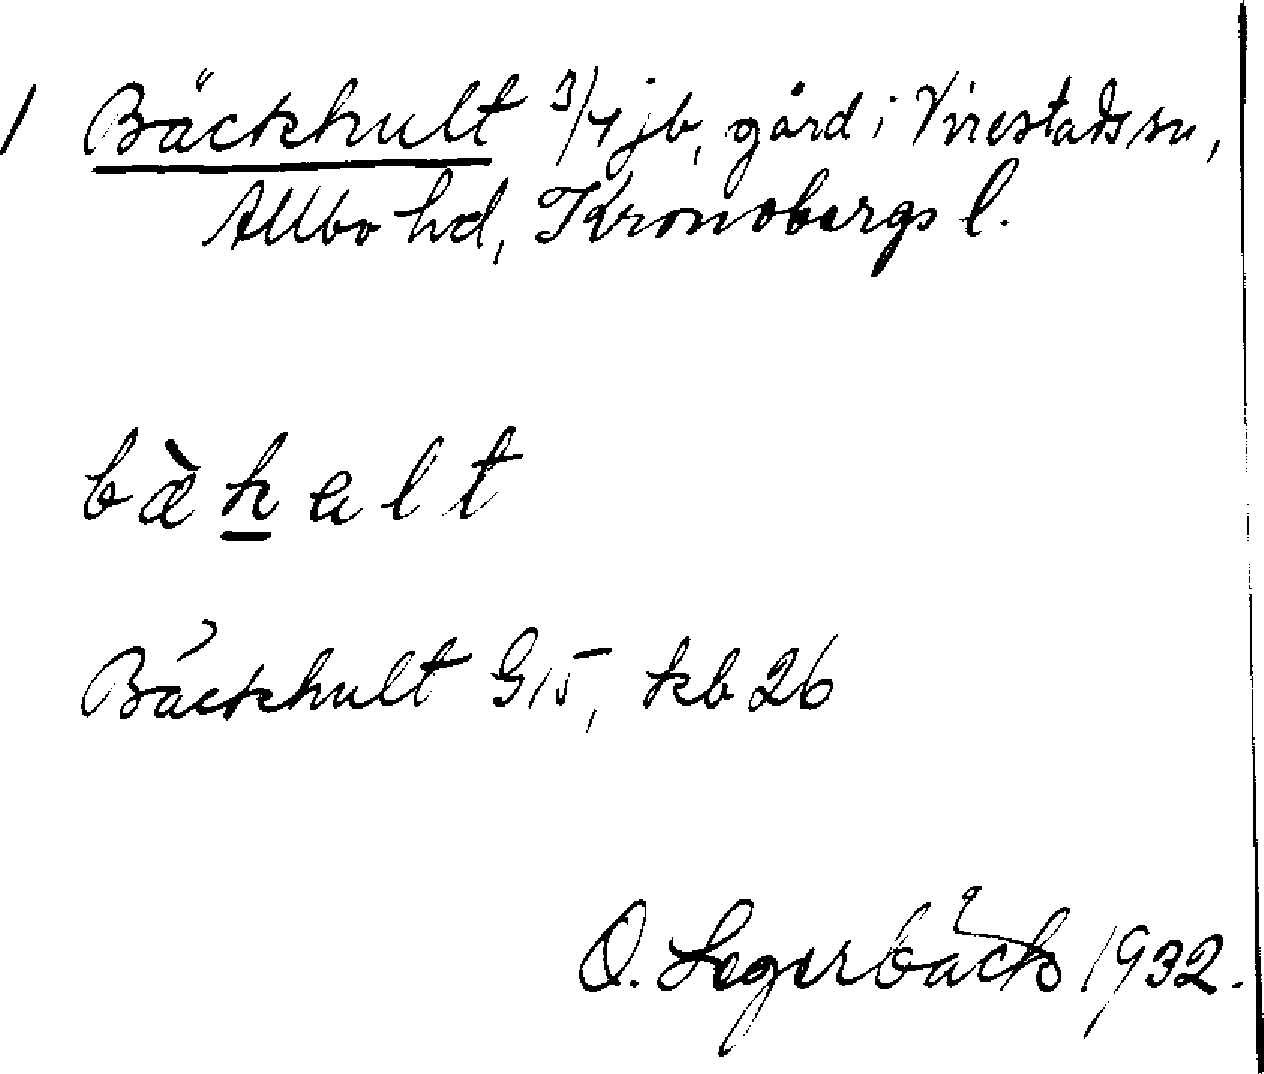 1 Bäckhult 3/4 jb, gård i Virestads sn,
Allbo hd, Kronobergs l.
bæ̀halt
Bäckhult G15, kb 26
O. Segerbäck 1932.